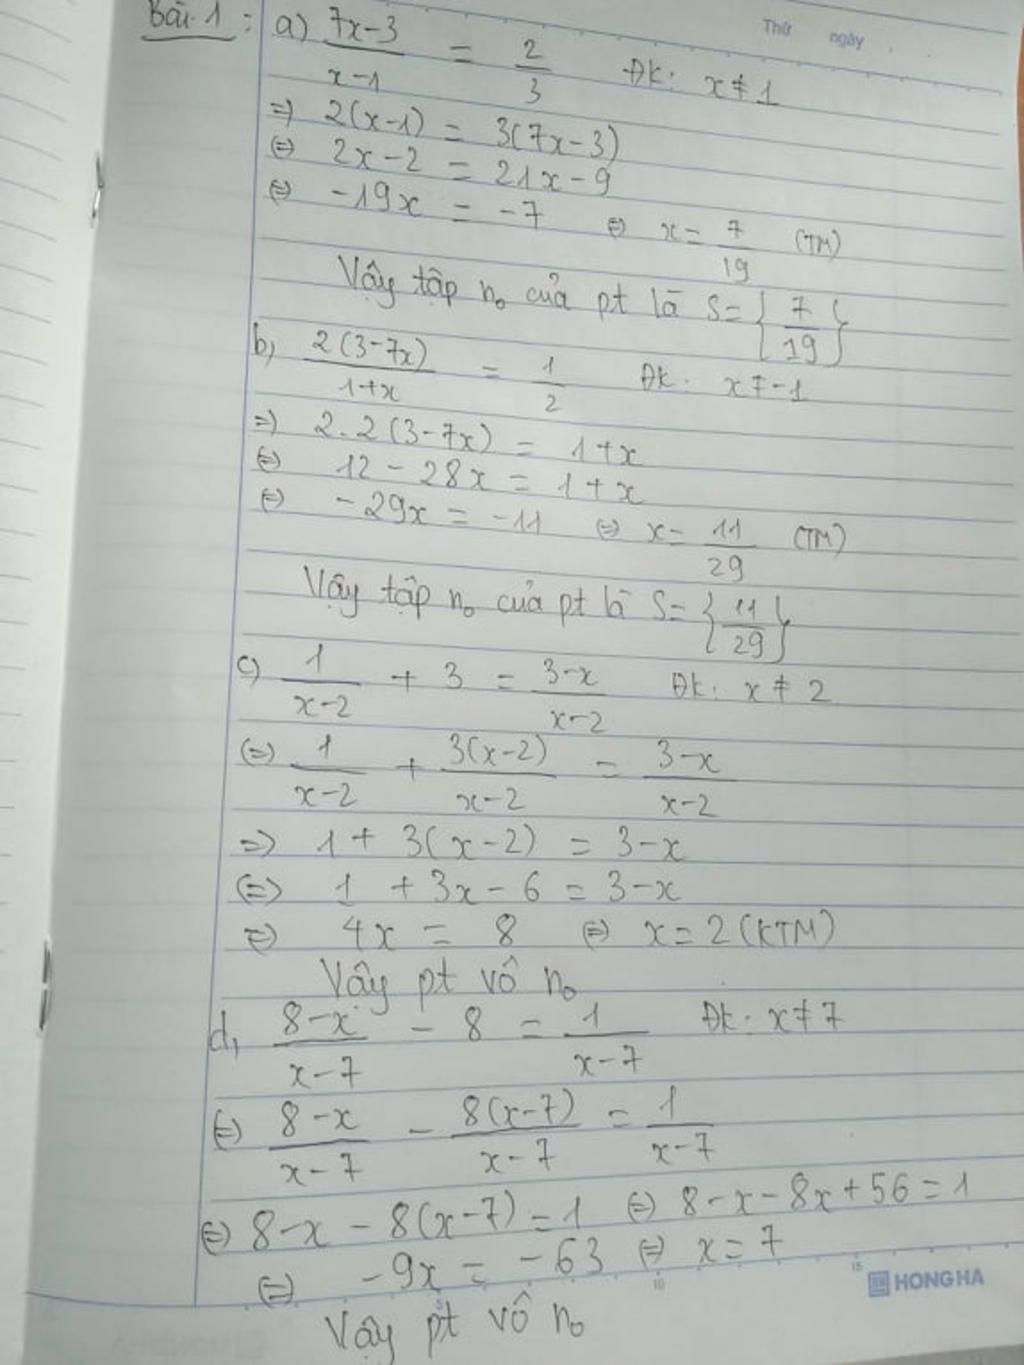 Thứ ngày
Bài 1: a) 7x-3/x-1 = 2/3 ĐK: x ≠ 1
=> 2(x-1) = 3(7x-3)
<=> 2x-2 = 21x-9
<=> -19x = -7 <=> x = 7/19 (TM)
Vậy tập n₀ của pt là S = {7/19}
b, 2(3-7x)/1+x = 1/2 ĐK: x ≠ -1
=> 2.2(3-7x) = 1+x
<=> 12 - 28x = 1+x
<=> -29x = -11 <=> x = 11/29 (TM)
Vậy tập n₀ của pt là S = {11/29}
c) 1/x-2 + 3 = 3-x/x-2 ĐK: x ≠ 2
<=> 1/x-2 + 3(x-2)/x-2 = 3-x/x-2
=> 1 + 3(x-2) = 3-x
<=> 1 + 3x - 6 = 3-x
<=> 4x = 8 <=> x = 2 (KTM)
Vậy pt vô n₀
d, 8-x/x-7 - 8 = 1/x-7 ĐK: x ≠ 7
<=> 8-x/x-7 - 8(x-7)/x-7 = 1/x-7
<=> 8-x - 8(x-7) = 1 <=> 8-x-8x+56 = 1
<=> -9x = -63 <=> x = 7
Vậy pt vô n₀
5 10 15
HONG HA